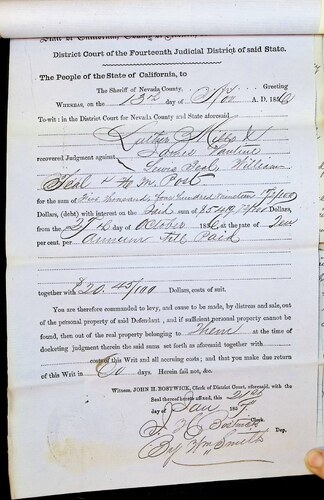 State of California, County of
District Court of the Fourteenth Judicial District of said State.
The People of the State of California, to
The Sheriff of Nevada County, Greeting
WHEREAS, on the 13th day of Nov A. D. 1856
To-wit: in the District Court for Nevada County and State aforesaid
Luther
James
recovered Judgment against Lewis Teal, William
Teal & H M Post
for the sum of Five thousand, four hundred nineteen 72/100
Dollars, (debt) with interest on the Said sum of $5419 72/100 Dollars,
from the day of October 1856 at the rate of Ten
per cent. per Annum till Paid
together with $20.45/100 Dollars, costs of suit.
You are therefore commanded to levy, and cause to be made, by distress and sale, out
of the personal property of said Defendant, and if sufficient personal property cannot be
found, then out of the real property belonging to Them at the time of
docketing judgment therein the said sum set forth as aforesaid together with
costs of this Writ and all accruing costs; and that you make due return
of this Writ in 60 days. Herein fail not, &c.
Witness, JOHN H. BOSTWICK, Clerk of District Court, aforesaid, with the
Seal thereof hereto affixed, this 21st
day of Jan 1857
J H Bostwick Clerk.
By Wm Smith Dep.